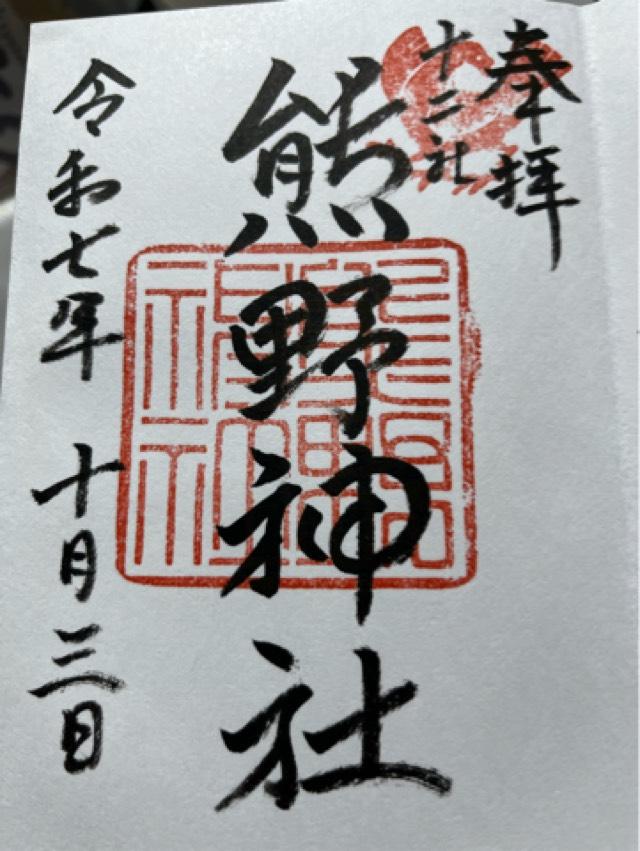 奉拝
十二社
熊野神社
令和七年 十月三日